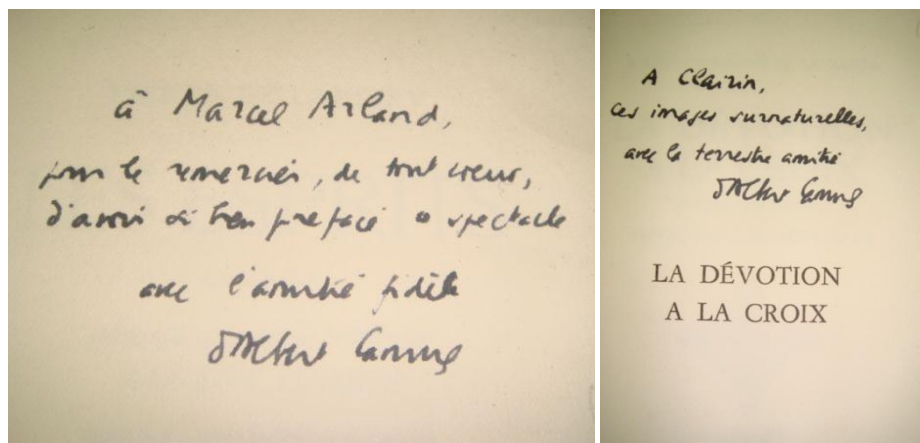 à Marcel Arland,
pour le remercier, de tout coeur,
d'avoir si bien préfacé ce spectacle
avec l'amitié fidèle
d'Albert Camus
A Clairin,
ces images surnaturelles,
avec la terrestre amitié
d'Albert Camus
LA DÉVOTION
A LA CROIX